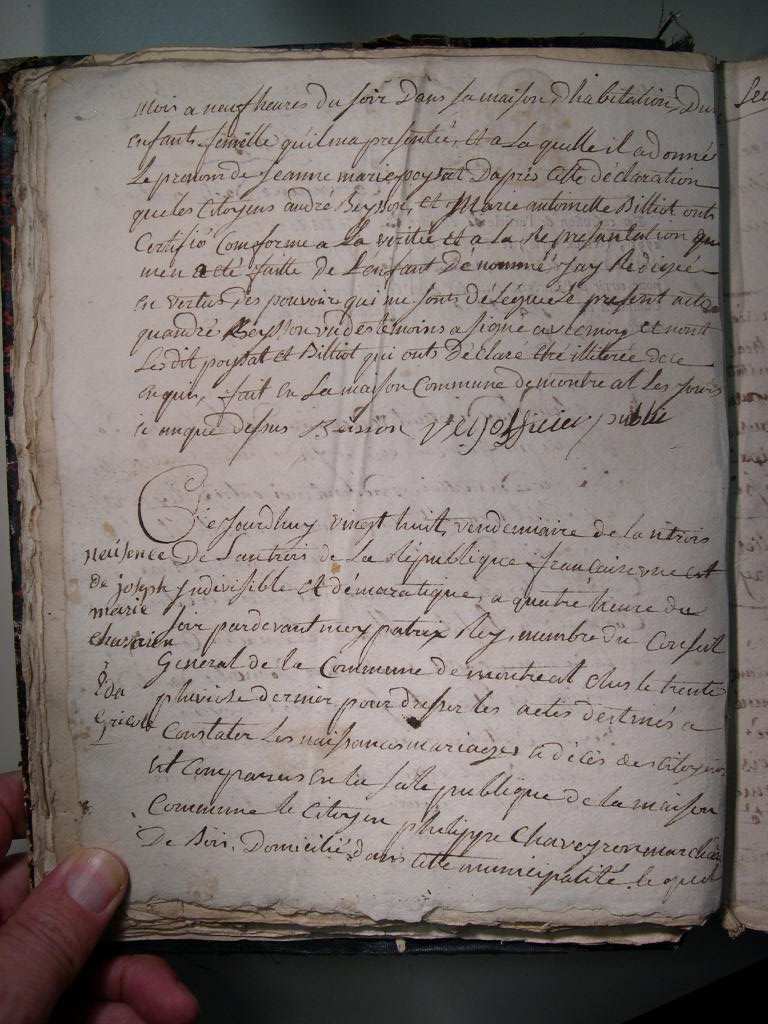 mois a neuf heures du soir dans sa maison d'habitation, d'un
enfant femelle qu'il ma presentée, et a la quelle il a donné
le prenom de jeanne marie poysat d'après cette déclaration
que les citoyens andré Beysson, et Marie antoinette Billiot onts
certifié comforme a la veritée et a la Representation qui
men a été faitte de l'enfant denommé jay Redigée
en vertus des pouvoirs qui me sonts délégués le present acte
quandré Beysson un des temoins a signé avec moy et nont
les dit poysat et Billiot qui onts déclaré etre illiterée de ce
enquis, fait en la maison commune de montreal les jours
an que dessus Beisson Rey officier public
Ce jourdhuy vingt huit, vendemiaire de lan trois
de lan trois de la République françaisse une est
indivisible et démocratique, a quatre heure du
soir pardevant moy patrix Rey, membre du Conseil
General de la Commune de montreal elus le trente
pluviose dernier pour dresser les actes destinés a
constater les naissances mariages et décès des citoyens
est comparus en la sale publique de la maison
commune le citoyen philippe Chaveyron marchan
de Bois, domicilié dans cette municipalité, le quel
naisence
de joseph
marie
chaveiron